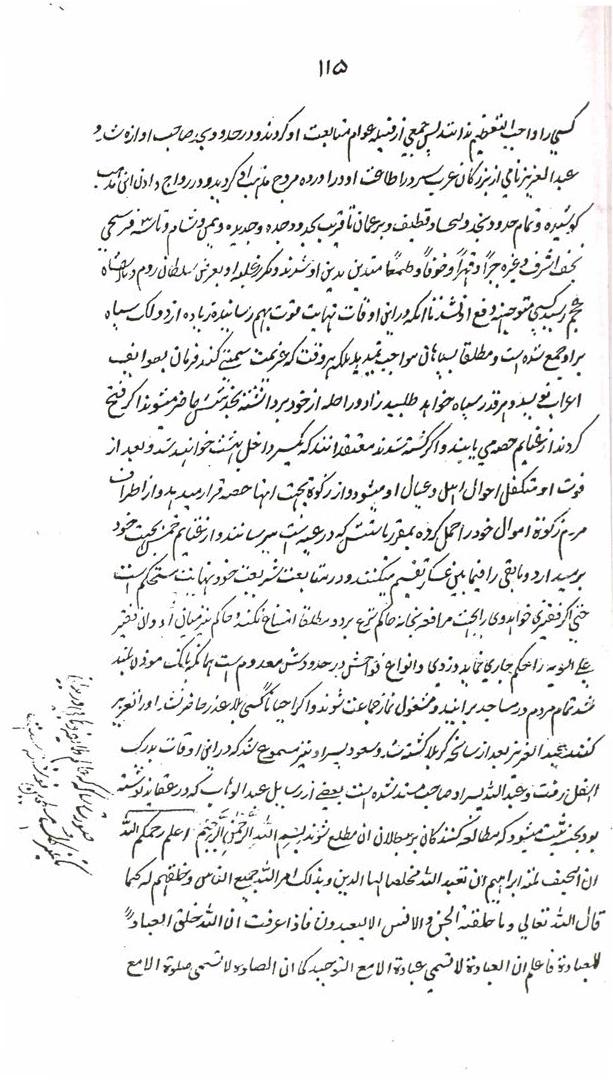 ۱۱۵
کسی را واجب التعظیم ندانند پس جمعی از قبیله عوام متابعت او کردند و در حدود نجد صاحب اوازه شد و
عبد العزیز نامی از بزرکان عرب سر در اطاعت او در اورده مروج مذهب او کردید و در رواج دادن این مذهب
کوشیده و تمام حدود نجد و لحسا و قطیف و بر عمان تا قریب بحدود جده و حدیده و یمن و شام و تا سه فرسخی
نجف اشرف و غیره جبراً و قهراً و خوفاً و طمعاً متدین بدین او شدند و مکرر غلبه او بعرض سلطان روم و پادشاه
عجم رسید کسی متوجه دفع او نشد تا انکه در این اوقات نهایت قوت بهم رسانیده زیاده از دو لک سپاه
بر او جمع شده است و مطلقا بسپاهیان مواجب نمیدهد بلکه هر وقت که عزیمت سمتی کند فرمان بطوایف
اعراب نویسد و هر قدر سپاه خواهد طلبید زاد و راحله از خود برداشته بخدمتش حاضر میشوند اکر فتح
کردند از غنایم حصه می یابند و اکر کشته شدند معتقد انند که یکسر داخل بهشت خواهند شد و بعد از
فوت او متکفل احوال اهل و عیال او میشود و از زکوة بجهت انها حصه قرار میدهد و از اطراف
مردم زکوة اموال خود را حمل کرده بمقر ریاستش که درعیه است میرسانند و از غنایم خمس بجهت خود
بر میدارد و مابقی را فیما بین عساکر تقسیم میکنند و در متابعت شریعت خود نهایت مستحکم است
حتی اکر فقیری خواهد وی را بجهت مرافعه بخانه حاکم شرع برد مطلقا امتناع نکند و حاکم نیز میان او و ان فقیر
علی السویه حکم جاری نماید و دزدی و انواع فواحش در حدودش معدوم است همانکه بانک موذن بلند
شد تمام مردم در مساجد برایند و مشغول نماز جماعت شوند و اکر احیاناً کسی بلا عذر حاضر نشد او را تعزیر
کنند عبد العزیز بعد از سانحه کربلا کشته شد و سعود پسر او نیز مسموع شد که در این اوقات بدرک
اسفل رفت و عبد الله پسر او صاحب مسند شده است بعضی از رسایل عبد الوهاب که در عقاید نوشته
بود بجنسه ثبت میشود که مطالعه کنندکان بر بطلان ان مطلع شوند بسم الله الرحمن الرحیم اعلم رحمکم الله
ان الحنیف ملة ابراهیم ان تعبد الله مخلصا لها الدین و بذلک امر الله جمیع الناس و خلقهم له کما
قال الله تعالی و ما خلقت الجن و الانس الا لیعبدون فاذا عرفت ان الله خلق العباد
للعبادة فاعلم ان العبادة لا تسمی عبادة الا مع التوحید کما ان الصلوة لا تسمی صلوة الا مع